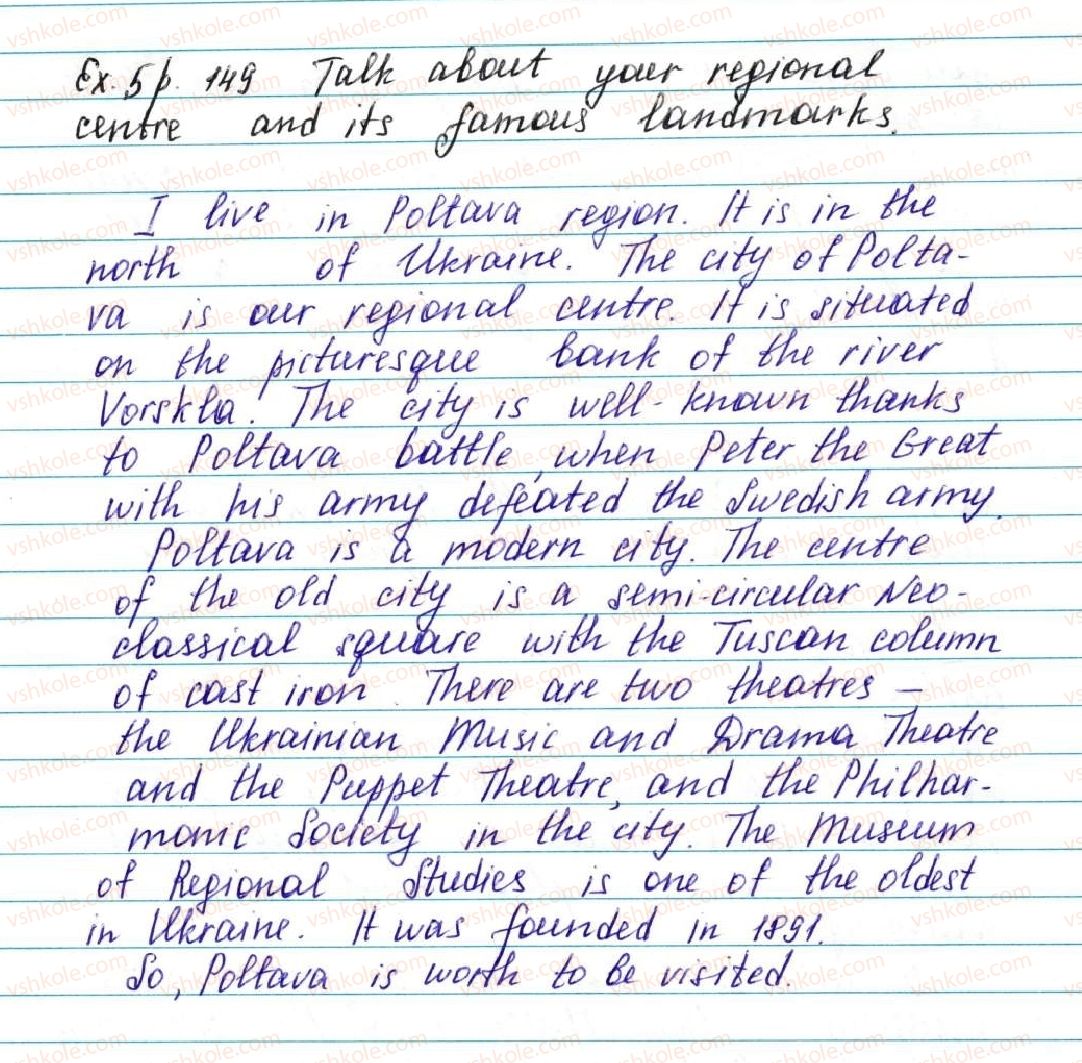 Ex. 5 p. 149 Talk about your regional
centre and its famous landmarks.
I live in Poltava region. It is in the
north of Ukraine. The city of Polta-
va is our regional centre. It is situated
on the picturesque bank of the river
Vorskla. The city is well-known thanks
to Poltava battle, when Peter the Great
with his army defeated the Swedish army.
Poltava is a modern city. The centre
of the old city is a semi-circular Neo-
classical square with the Tuscan column
of cast iron. There are two theatres –
the Ukrainian Music and Drama Theatre
and the Puppet Theatre, and the Philhar-
monic Society in the city. The Museum
of Regional Studies is one of the oldest
in Ukraine. It was founded in 1891.
So, Poltava is worth to be visited.